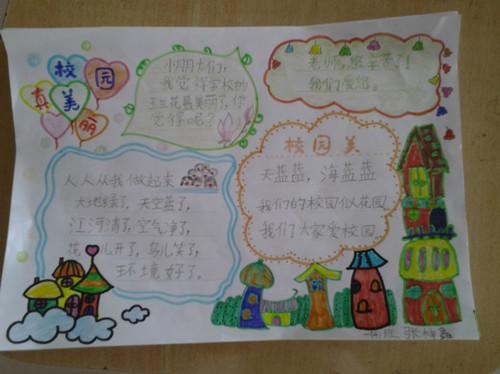 校园
真美丽
小朋友们，
我觉得学校的
玉兰花最美丽了，你
觉得呢？
老师，您辛苦了！
我们爱您。
人人从我做起来
大地绿了，天空蓝了，
江河清了，空气净了，
花儿开了，鸟儿笑了，
环境好了。
校园美
天蓝蓝，海蓝蓝
我们的校园似花园
我们大家爱校园